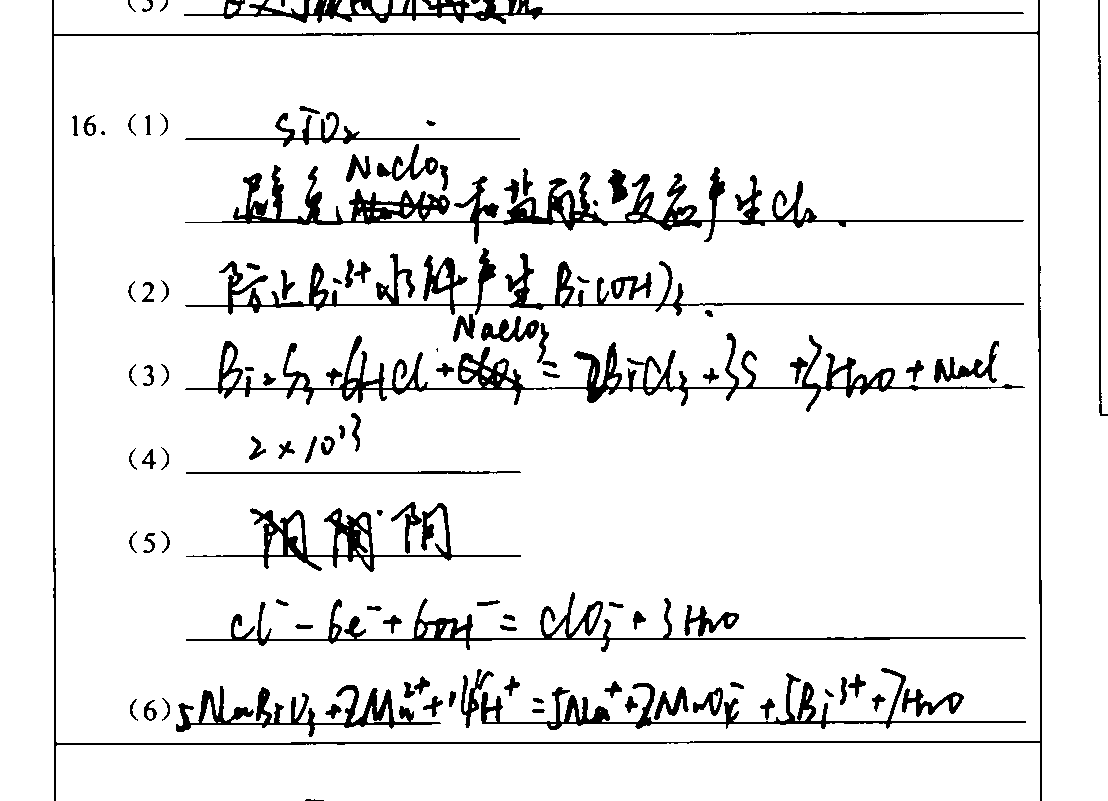 (5)
16. (1) SiO₂
避免NaClO₃和盐酸反应产生Cl₂.
(2) 防止Bi³⁺水解产生Bi(OH)₃.
(3) Bi₂S₃+6HCl+NaClO₃=2BiCl₃+3S+3H₂O+NaCl.
(4) 2×10¹³
(5) 阴
Cl⁻-6e⁻+6OH⁻=ClO₃⁻+3H₂O
(6) 5NaBiO₃+2Mn²⁺+14H⁺=5Na⁺+2MnO₄⁻+5Bi³⁺+7H₂O